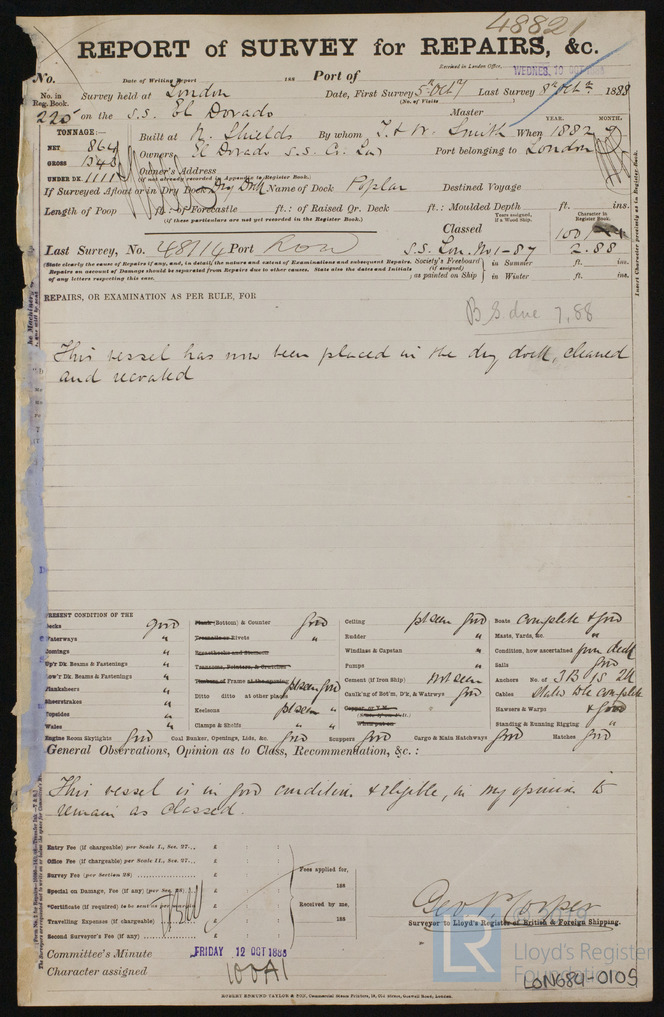 48821
REPORT of SURVEY for REPAIRS, &c.
Received in London Office, WEDNES. 10 OCT 1888
No. Date of Writing Report 188 Port of
No. in Reg. Book. Survey held at London Date, First Survey 5th Octr Last Survey 8th Octr 1888
(No. of Visits )
220 on the S.S. El Dorado Master
TONNAGE:— Built at N. Shields By whom T. & W. Smith When 1882 YEAR. MONTH.
NET 864
GROSS 1343 Owners El Dorado S.S. Co. Ld Port belonging to London
UNDER DK. 1111 Owner's Address
(if not already recorded in Appendix to Register Book.)
If Surveyed Afloat or in Dry Dock Dry Dock Name of Dock Poplar Destined Voyage
Length of Poop ft.: of Forecastle ft.: of Raised Qr. Deck ft.: Moulded Depth ft. ins.
(if these particulars are not yet recorded in the Register Book.)
Classed Years assigned, if a Wood Ship. Character in Register Book.
100A1
Last Survey, No. 48114 Port Lon S.S. Lon. No 1-87 2.88
(State clearly the cause of Repairs if any, and, in detail, the nature and extent of Examinations and subsequent Repairs.
Repairs on account of Damage should be separated from Repairs due to other causes. State also the dates and Initials
of any letters respecting this case.
Society's Freeboard (if assigned) as painted on Ship } in Summer ft. ins.
in Winter ft. ins.
Insert Character precisely as in Register Book.
REPAIRS, OR EXAMINATION AS PER RULE, FOR
B S due 7,88
This vessel has now been placed in the dry dock, cleaned
and recoated
PRESENT CONDITION OF THE
Decks good
Waterways "
Comings "
Up'r Dk. Beams & Fastenings "
Low'r Dk. Beams & Fastenings "
Planksheers "
Sheerstrakes "
Topsides "
Wales "
Engine Room Skylights good
Plank (Bottom) & Counter good
Treenails or Rivets "
Breasthooks and Stemson
Transoms, Pointers, & Crutches
Timbers of Frame at the opening
Ditto ditto at other places pt seen good
Keelsons pt seen "
Clamps & Shelfs " "
Coal Bunker, Openings, Lids, &c. good
Scuppers good
Ceiling pt seen good
Rudder "
Windlass & Capstan "
Pumps "
Cement (if Iron Ship) not seen
Caulk'ng of Bot'm, D'k, & Watrwys good
Copper, or Y.M.
When put on
Cargo & Main Hatchways good
Boats complete & good
Masts, Yards, &c. "
Condition, how ascertained from deck
Sails good
Anchors No. of 3B 1S 2K
Cables stated to be complete
Hawsers & Warps & good
Standing & Running Rigging "
Hatches good
General Observations, Opinion as to Class, Recommendation, &c.:
This vessel is in good condition & eligible, in my opinion to
remain as classed.
Entry Fee (if chargeable) per Scale I., Sec. 27... £ : :
Office Fee (if chargeable) per Scale II., Sec. 27... £ : :
Survey Fee (per Section 28) £ : :
Special on Damage, Fee (if any) (per Sec. 28) £ : :
*Certificate (if required) to be sent as per margin £ : :
Travelling Expenses (if chargeable) £ : :
Second Surveyor's Fee (if any) £ : :
Fees applied for,
188
Received by me,
188
Geo P Cooper
Surveyor to Lloyd's Register of British & Foreign Shipping.
Committee's Minute FRIDAY 12 OCT 1888
Character assigned 100A1
© 2019
LR
Lloyd's Register
Foundation
LON684-0105
ROBERT EDMUND TAYLOR & SON, Commercial Steam Printers, 19, Old Street, Goswell Road, London.